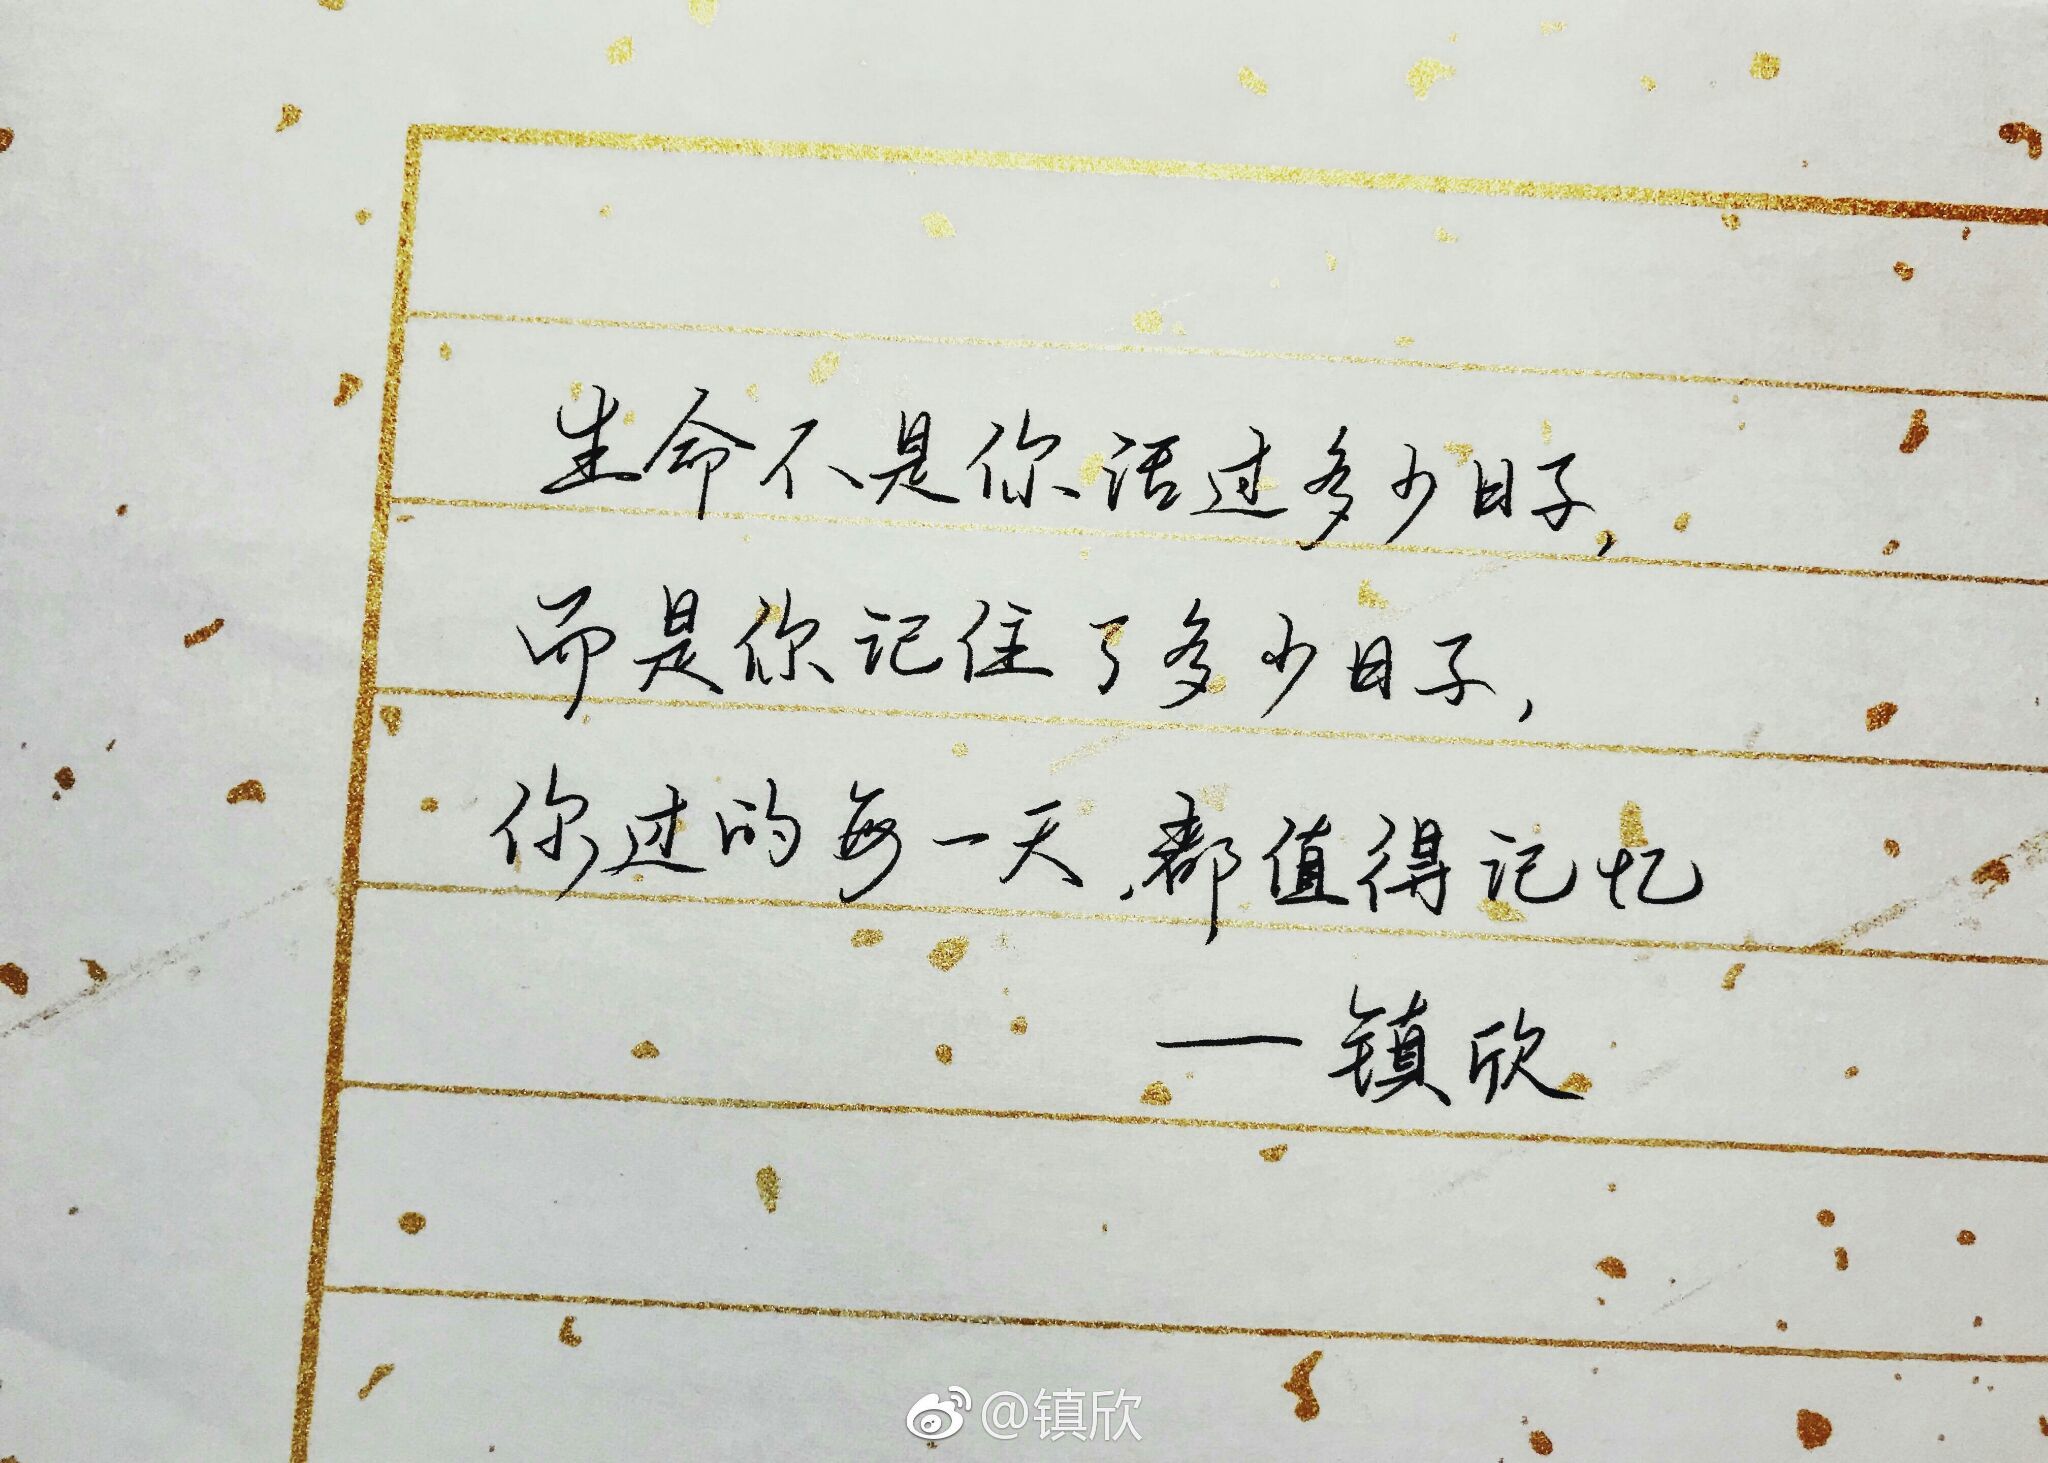 生命不是你活过多少日子,
而是你记住了多少日子,
你过的每一天,都值得记忆
——镇欣
@镇欣